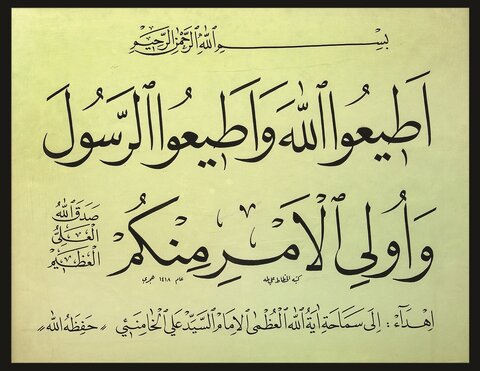 بِسْمِ اللهِ الرَّحْمٰنِ الرَّحِيْمِ
اَطِيعُوا اللهَ وَاَطِيعُوا الرَّسُولَ
وَاُولِي الْاَمْرِ مِنْكُمْ
صَدَقَ اللهُ
الْعَلِيُّ
الْعَظِيْمُ
كتبه الخطاط علي طه
عام ١٤١٨ هجري
اِهْدَآء : اِلَى سَمَاحَةِ اٰيَةُ اللهِ الْعُظْمٰى الْاِمَامِ السَّيِّدْ عَلِي الْخَامَنَئِي «حَفِظَهُ الله»